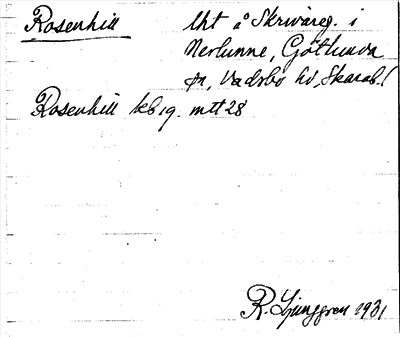 Rosenhill lht å Skrivareg. i
Nerlunne, Götlunda
sn, Vadsbo hd, Skarab.l
Rosenhill kb 19. mtt 28
R. Ljunggren 1931